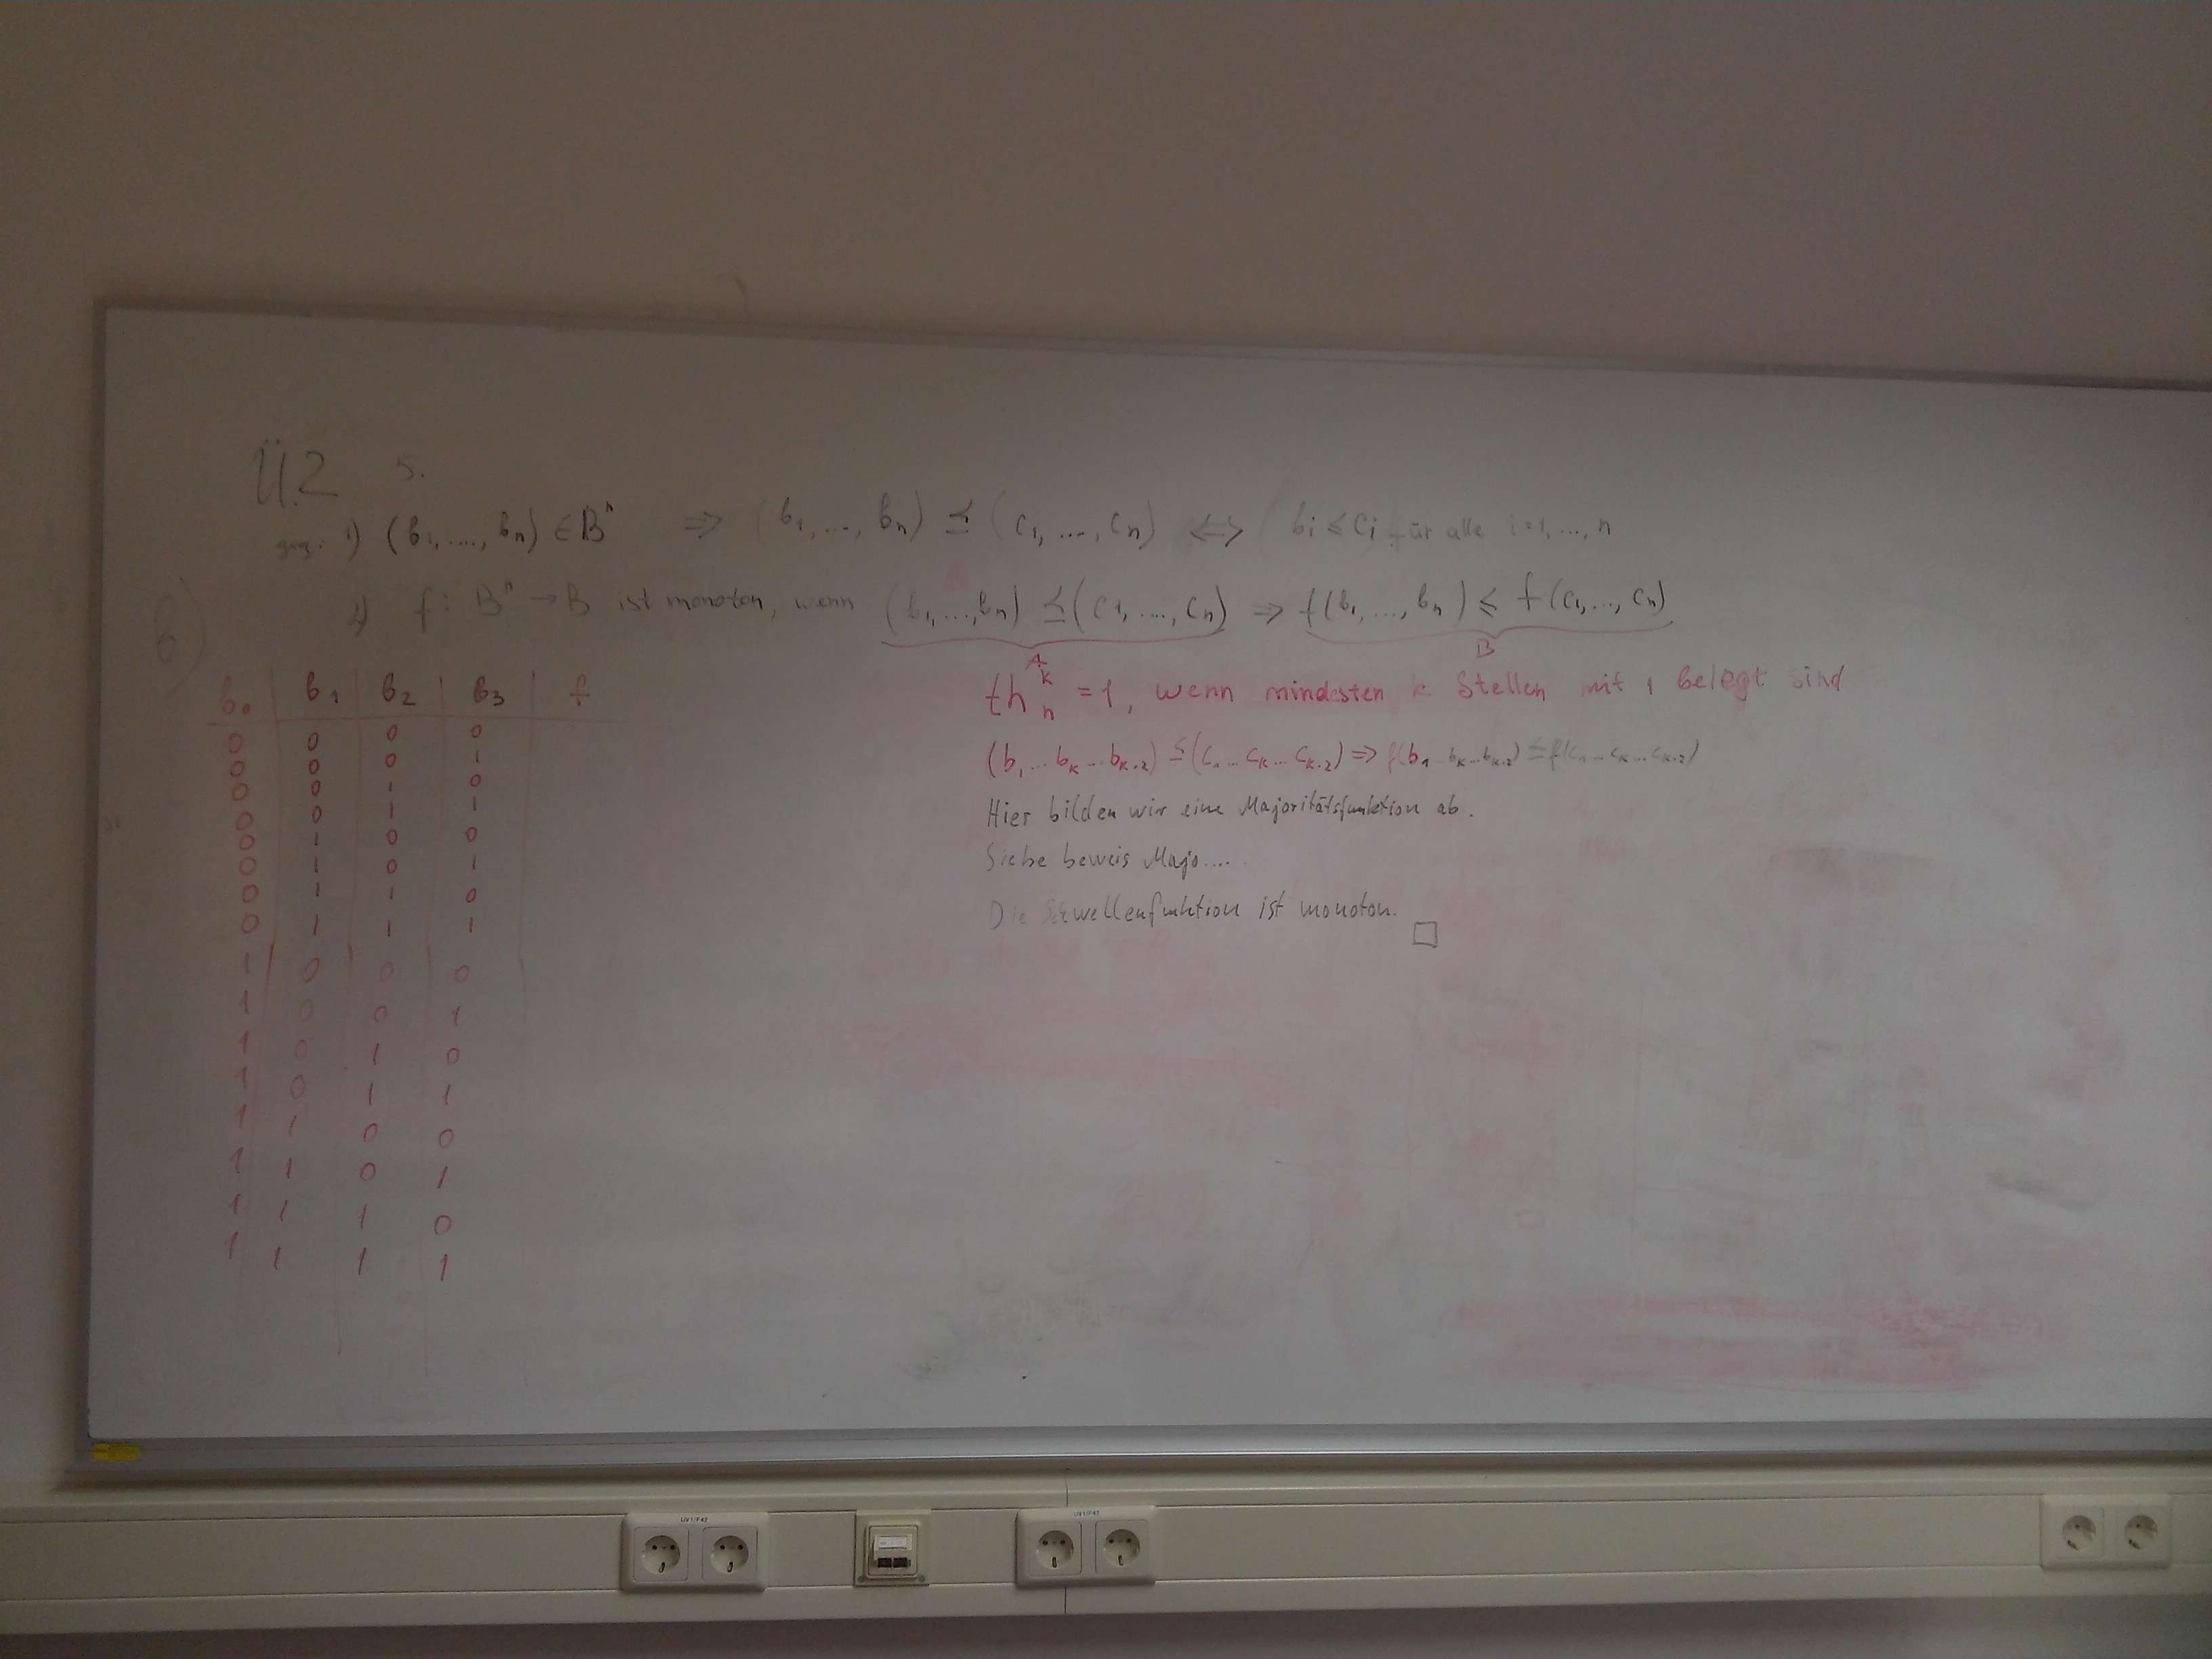 Ü.2 5.
geg: 1) (b₁, ...., bₙ) ∈ Bⁿ ⇒ (b₁, ..., bₙ) ≤ (c₁, ..., cₙ) ⇔ (bᵢ ≤ cᵢ für alle i = 1, ..., n
2) f : Bⁿ → B ist monoton, wenn (b₁, ..., bₙ) ≤ (c₁, ...., cₙ) ⇒ f(b₁, ..., bₙ) ≤ f(c₁, ..., cₙ)
A B
6)
b₀ b₁ b₂ b₃ f
0 0 0 0
0 0 0 1
0 0 1 0
0 0 1 1
0 1 0 0
0 1 0 1
0 1 1 0
0 1 1 1
1 0 0 0
1 0 0 1
1 0 1 0
1 0 1 1
1 1 0 0
1 1 0 1
1 1 1 0
1 1 1 1
thₙᵏ = 1, wenn mindesten k Stellen mit 1 belegt sind
(b₁ ... bₖ ... bₖ.₂) ≤ (c₁ ... cₖ ... cₖ.₂) ⇒ f(b₁ ... bₖ ... bₖ.₂) ≤ f(c₁ ... cₖ ... cₖ.₂)
Hier bilden wir eine Majoritätsfunktion ab.
Siehe beweis Majo....
Die Schwellenfunktion ist monoton. □
UV1/F42